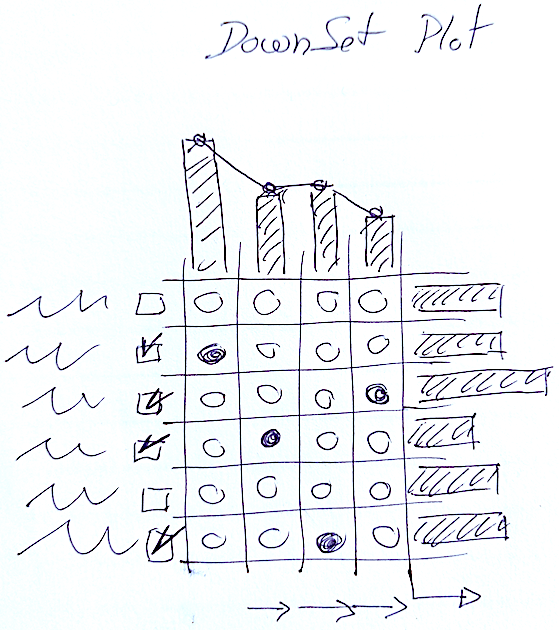 DownSet Plot